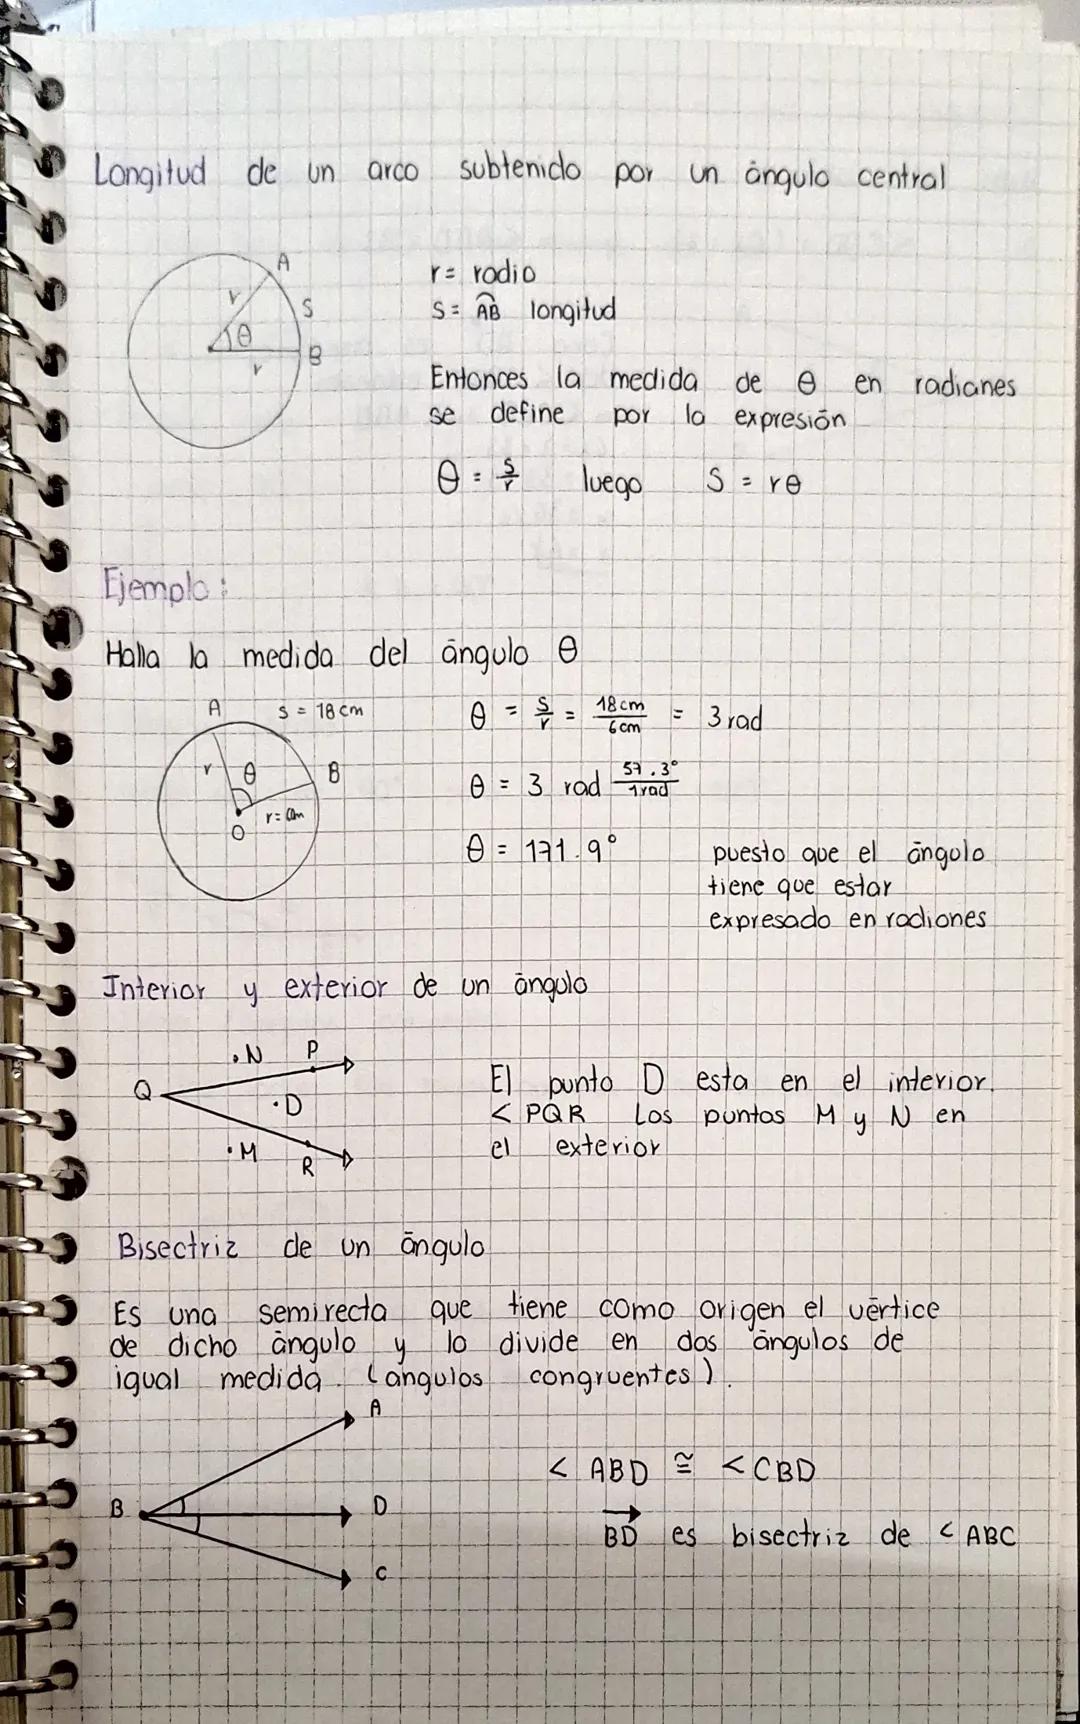 Longitud de un arco subtenido por un ángulo central
A
r
S
θ
B
r
r = radio
S = AB longitud
Entonces la medida de θ en radianes
se define por la expresión
θ = s/r luego S = rθ
Ejemplo:
Halla la medida del ángulo θ
A s = 18 cm
r θ B
r = 6cm
O
θ = s/r = 18cm/6cm = 3 rad
θ = 3 rad 57.3°/1rad
θ = 171.9° puesto que el ángulo
tiene que estar
expresado en radianes
Interior y exterior de un ángulo
.N P
Q
.D
.M
R
El punto D esta en el interior.
< PQR Los puntos M y N en
el exterior
Bisectriz de un ángulo
Es una semirecta que tiene como origen el vértice
de dicho ángulo y lo divide en dos ángulos de
igual medida. (angulos congruentes).
A
B D
C
< ABD ≅ < CBD
BD es bisectriz de < ABC